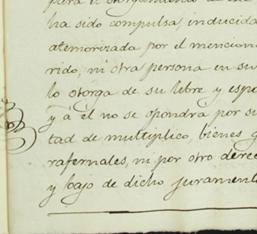 para el otorgamiento de
ha sido compulsa, inducida
atemorizada por el mencion
rido, ni otra persona en su
lo otorga de su libre y espo
y á él no se opondra por su
tad de multiplico, bienes
rafernales, ni por otro dere
y bajo de dicho juramento